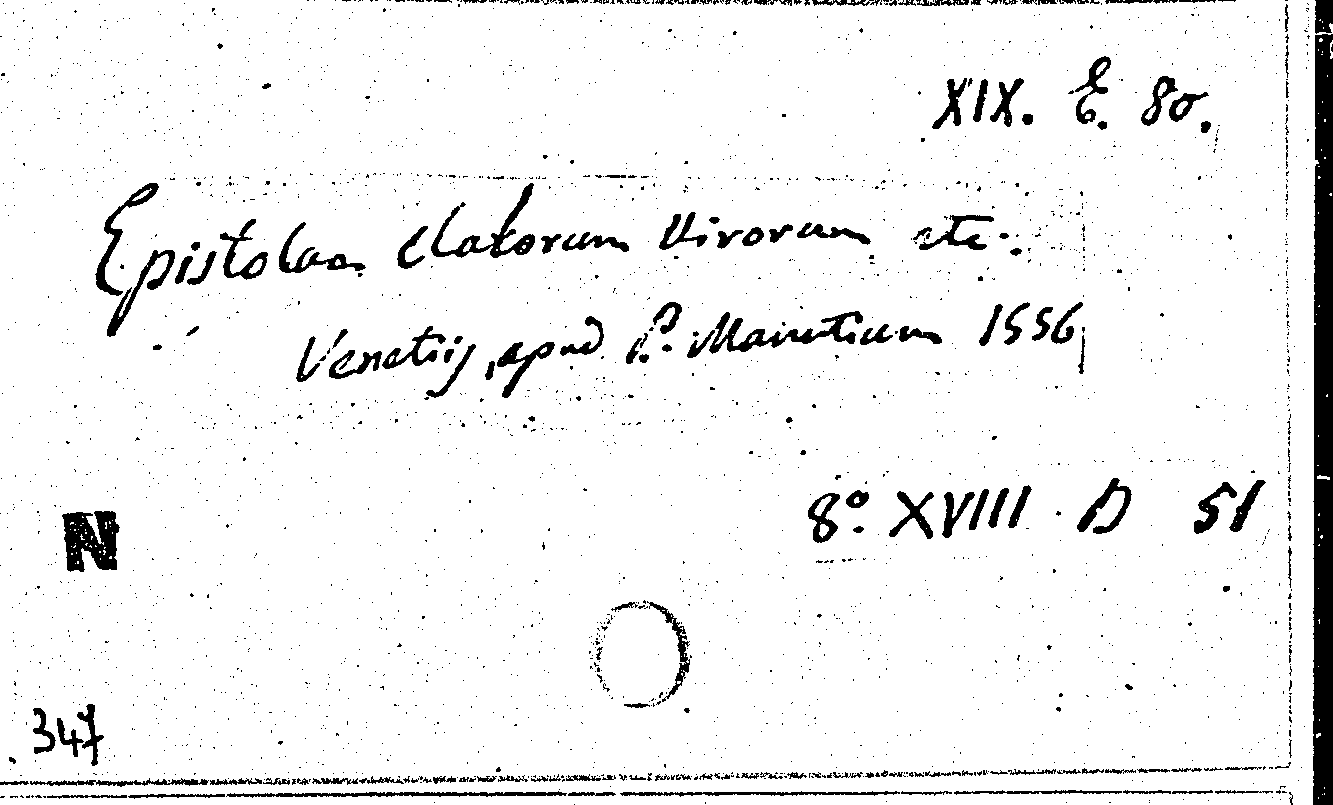 XIX. E. 80.
Epistolae Clarorum Virorum etc.
Venetiis, apud P. Manutium 1556
8º XVIII D 51
N
347